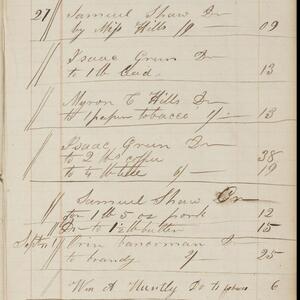 27 // Samuel Shaw Dr
by Miss Hills 09
// Isaac Grun Dr
to 1 lb lead 13
// Myron C Hills Dr
to 1 paper tobacco 13
// Isaac Grun Dr
to 2 lbs coffee 38
to 19
Samuel Shaw Cr
for 1 lb 5 oz pork 12
Dr to 1 1/2 lb butter 15
Sept 1 // Orin
to brandy 25
// Wm A to tobacco 6